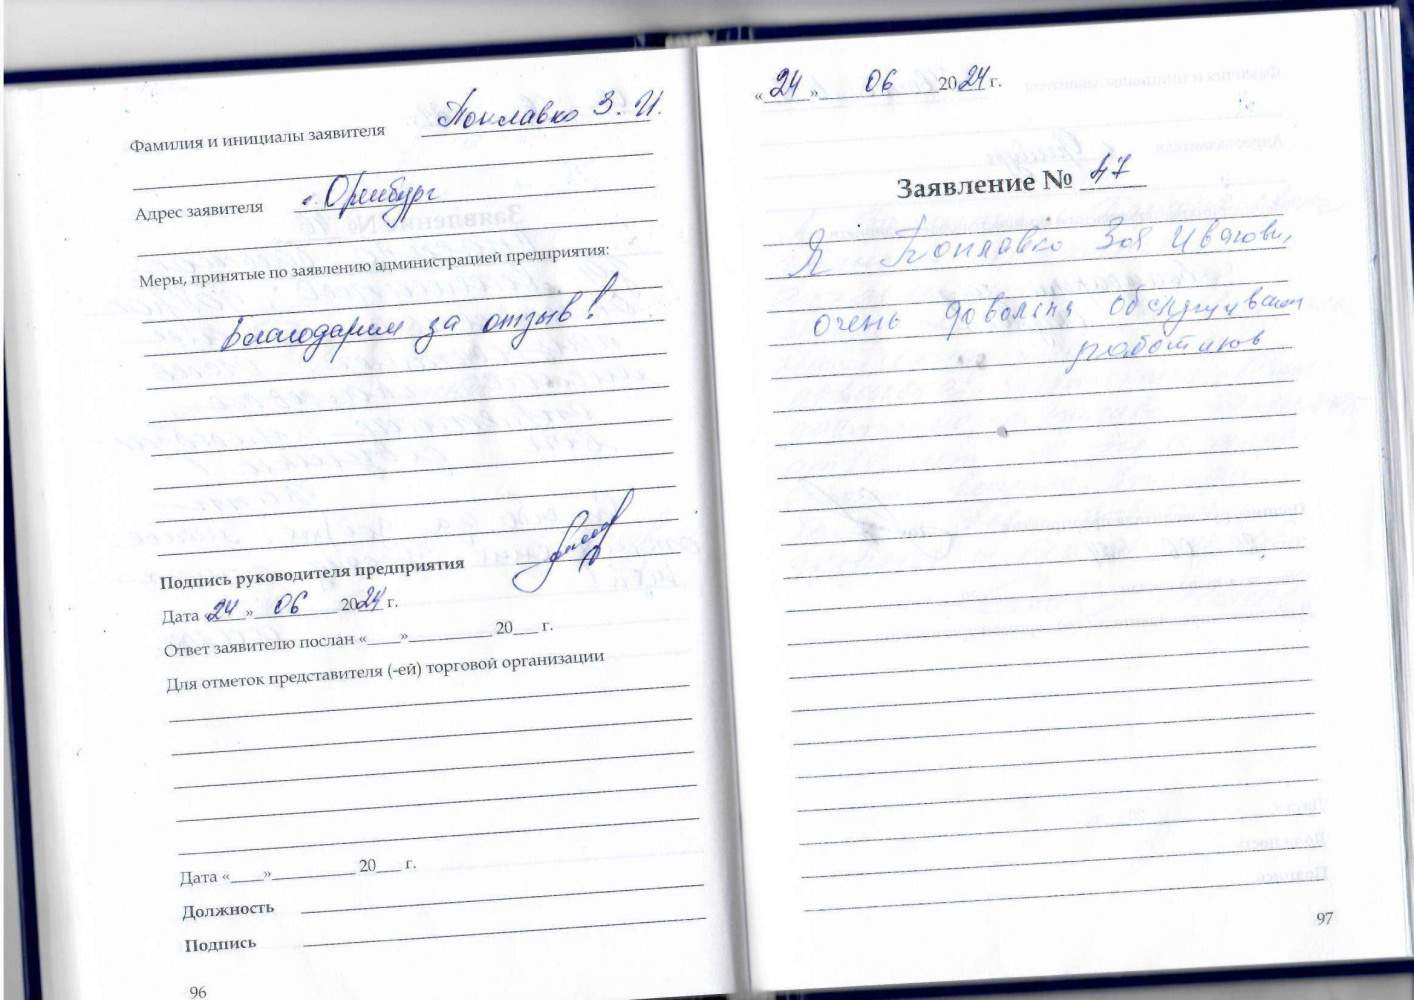 Фамилия и инициалы заявителя Поплавко З. И.
Адрес заявителя г. Оренбург
Меры, принятые по заявлению администрацией предприятия:
Благодарим за отзыв!
Подпись руководителя предприятия
Дата «24» 06 2024 г.
Ответ заявителю послан «____»__________ 20___ г.
Для отметок представителя (-ей) торговой организации
Дата «____»__________ 20___ г.
Должность
Подпись
96
«24» 06 2024 г.
Заявление № 47
Я Поплавко Зоя Иванов,
очень довольна обслуживан
работиков
97